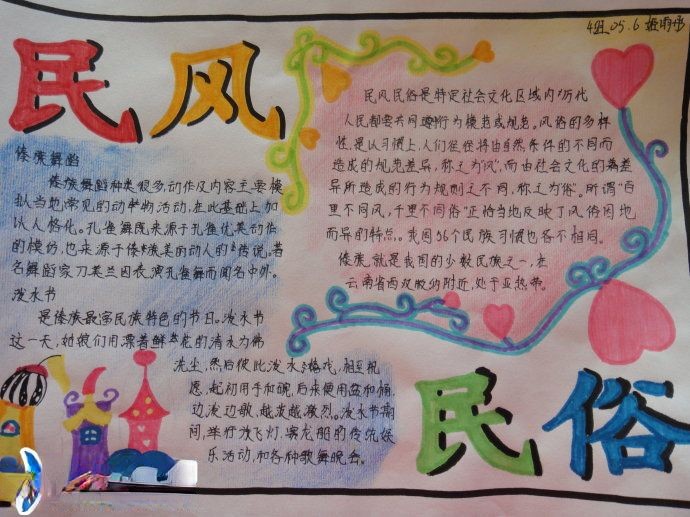 4班 05.6
民风
傣族舞蹈
傣族舞蹈种类很多,动作及内容主要模
拟当地常见的动物活动,在此基础上加
以人格化。孔雀舞既来源于孔雀优美动作
的模仿,也来源于傣族美的动人的传说。著
名舞蹈家刀美兰因表演孔雀舞而闻名中外。
泼水节
是傣族最富民族特色的节日。泼水节
这一天,她们用漂着鲜花的清水为佛
洗尘,然后彼此泼水嬉戏,相互祝
愿,起初用手和碗,后来使用盆和桶,
边泼边歌,越来越激烈。泼水节期
间,举行放飞灯,赛龙船的传统娱
乐活动,和各种歌舞晚会。
民风民俗是特定社会文化区域内历代
人民都要共同遵行为模范或规范。风俗的多样
性,是以习惯上,人们往往将由自然条件的不同而
造成的规范差异,称之为“风”,而由社会文化的差
异所造成的行为规则之不同,称之为“俗”。所谓“百
里不同风,千里不同俗”正恰当地反映了风俗因地
而异的特点。我国56个民族习惯也各不相同。
傣族,就是我国的少数民族之一,在
云南省西双版纳附近,处于亚热带。
民俗